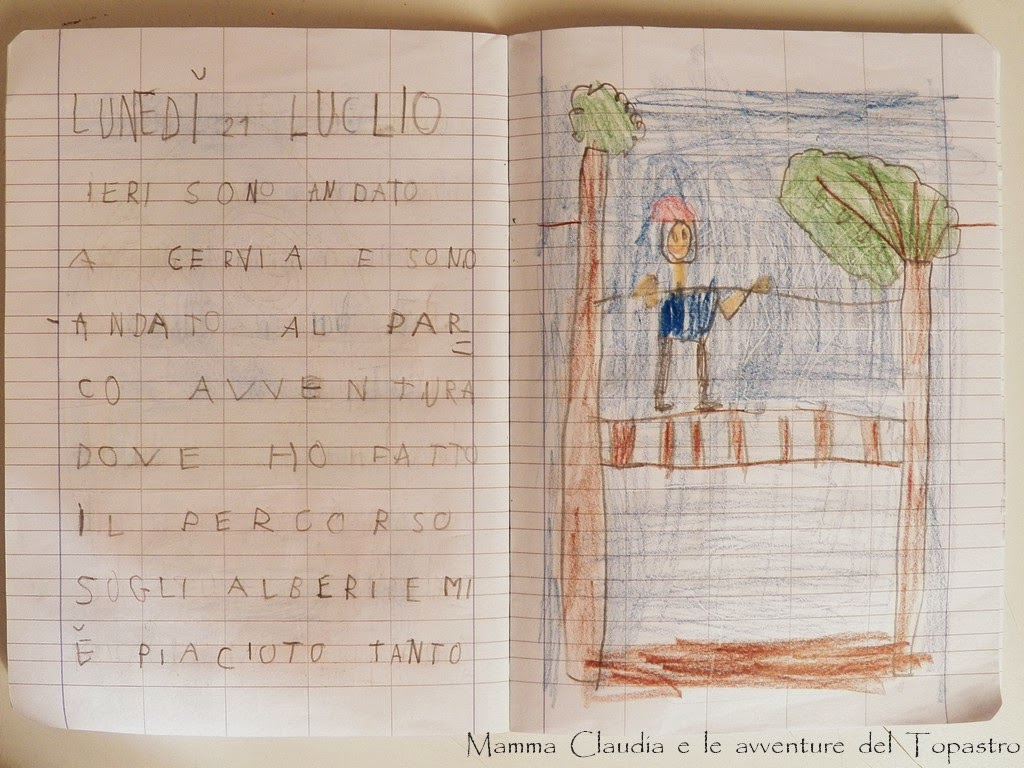 LUNEDÌ 21 LUCLIO
IERI SONO ANDATO
A CERVIA E SONO
ANDATO AL PAR=
CO AVVENTURA
DOVE HO FATTO
IL PERCORSO
SOGLI ALBERI E MI
È PIACIOTO TANTO
Mamma Claudia e le avventure del Topastro